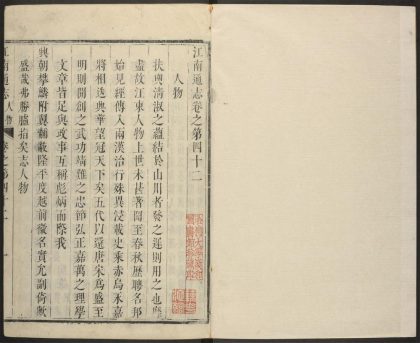 江南通志卷之第四十二
人物
扶輿清淑之蘊結於山川者發之遲則用之也
盡故江東人物上世未甚著聞至春秋歷聘名邦
始見經傳入兩漢治行殊異浸載史乘赤烏永嘉
將相迭興華望冠天下矣五代以還唐宋為盛至
明則開創之武功靖難之忠節弘正嘉萬之理學
文章皆足與政事互稱彪炳而際我
興朝攀鱗附翼黼黻隆平度越前徽名實允副猗歟
盛哉弗勝臚指矣志人物
江南通志 人物 卷之第四十二 一